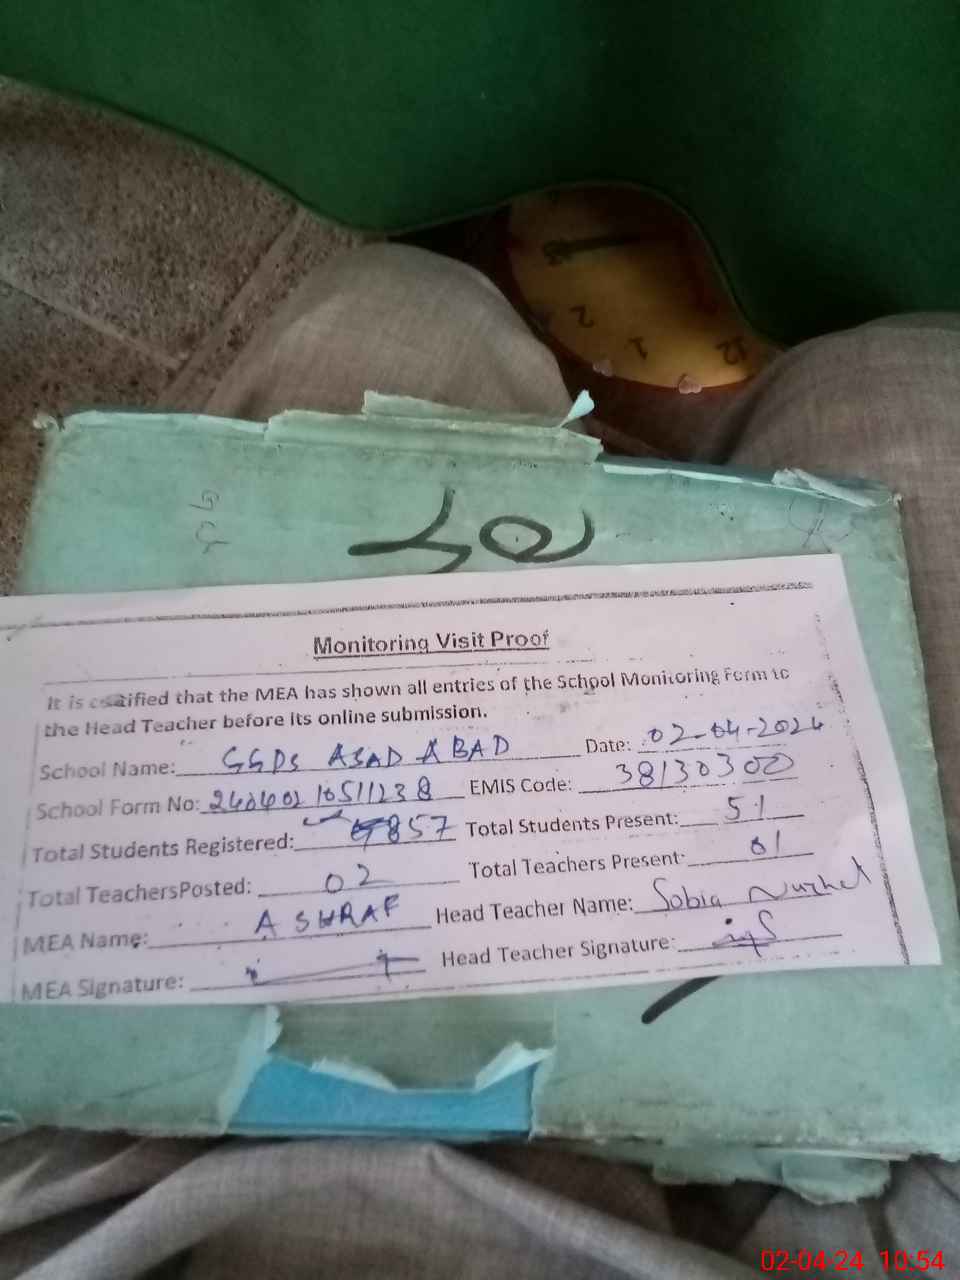 2
1
12
Monitoring Visit Proof
It is certified that the MEA has shown all entries of the School Monitoring Form to
the Head Teacher before its online submission.
School Name: GGPS ASAD ABAD Date: 02-04-2024
School Form No: 24040210511238 EMIS Code: 38130300
Total Students Registered: 57 Total Students Present: 51
Total TeachersPosted: 02 Total Teachers Present: 01
MEA Name: ASHRAF Head Teacher Name: Sobia Nuzhat
MEA Signature: Head Teacher Signature:
02-04-24 10:54